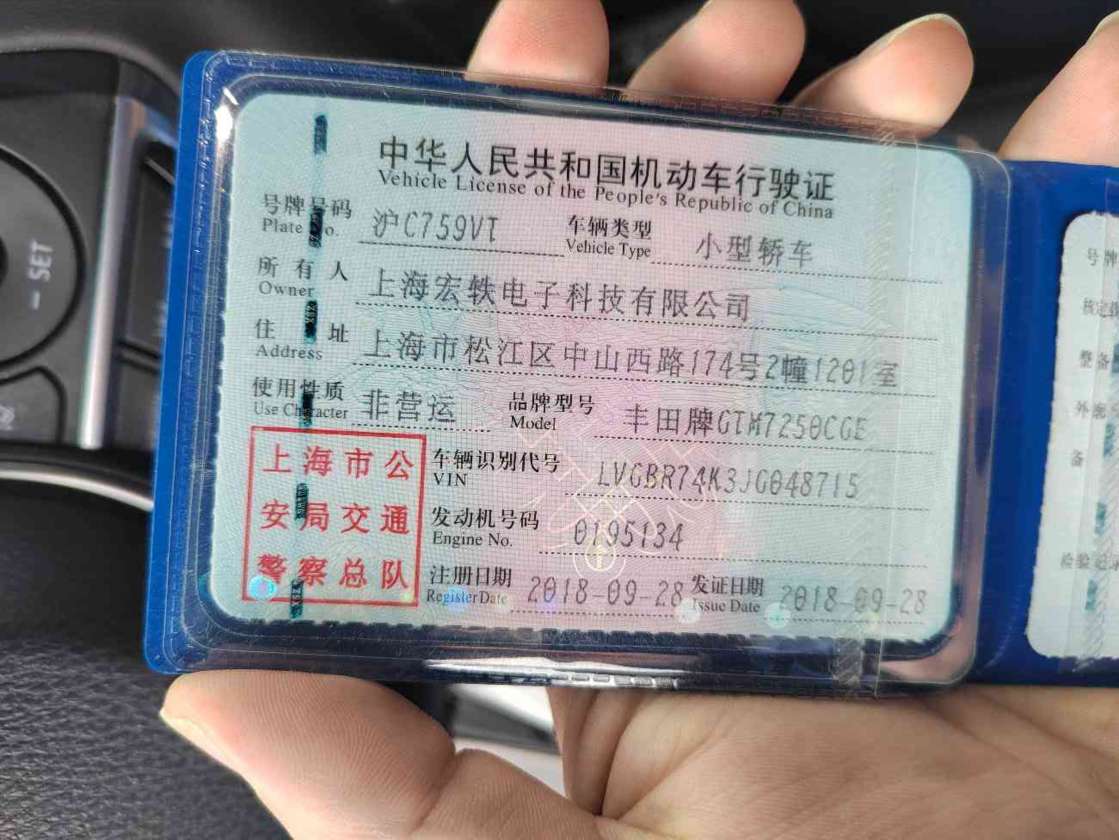 中华人民共和国机动车行驶证
Vehicle License of the People's Republic of China
号牌号码 沪C759VT 车辆类型 小型轿车
Plate No. Vehicle Type
所有人 上海宏轶电子科技有限公司
Owner
住址 上海市松江区中山西路174号2幢1201室
Address
使用性质 非营运 品牌型号 丰田牌GTM7250CGE
Use Character Model
上海市公
安局交通
警察总队
车辆识别代号 LVGBR74K3JG048715
VIN
发动机号码 0195134
Engine No.
注册日期 2018-09-28 发证日期 2018-09-28
Register Date Issue Date
号牌
核定
整备
外廓
备
检验记录
SET